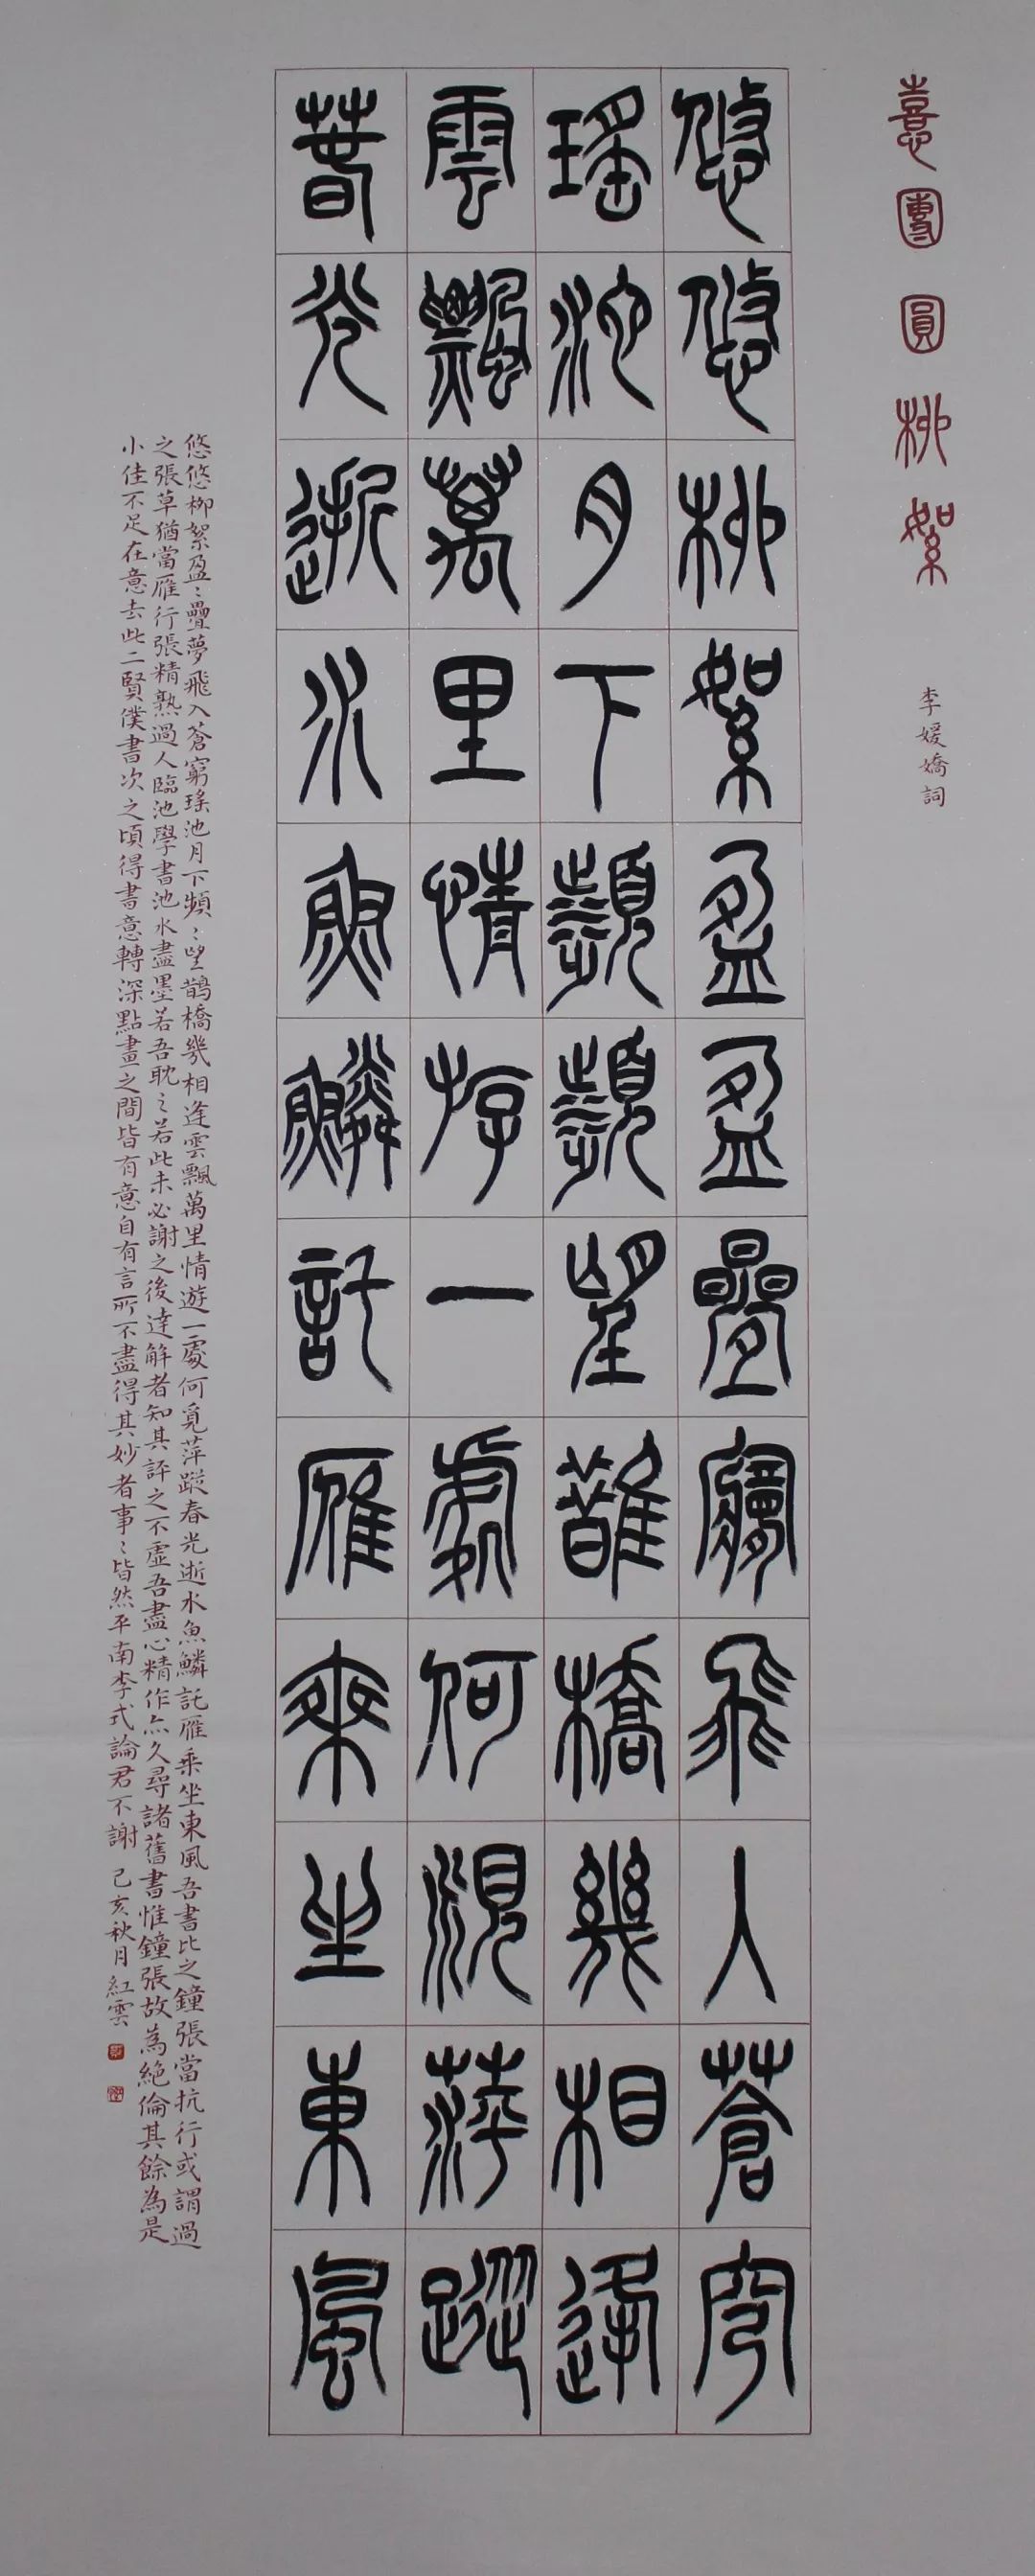 憙團圓柳絮
李媛嬌詞
悠悠柳絮盈盈疊夢飛入蒼穹
瑤池月下頻頻望鵲橋幾相逢
雲飄萬里情游一處何覓萍蹤
春光逝水魚鱗託雁乘坐東風
悠悠柳絮盈〻疊夢飛入蒼窮瑤池月下頻〻望鵲橋幾相逢雲飄萬里情遊一處何覓萍蹤春光逝水魚鱗託雁乘坐東風吾書比之鐘張當抗行或謂過
之張草猶當雁行張精熟過人臨池學書池水盡墨若吾耽之若此未必謝之後達解者知其評之不虛吾盡心精作亦久尋諸舊書惟鐘張故為絕倫其餘為是
小佳不足在意去此二賢僕書次之頃得書意轉深點畫之間皆有意自有言所不盡得其妙者事〻皆然平南李式論君不謝 己亥秋月紅雲